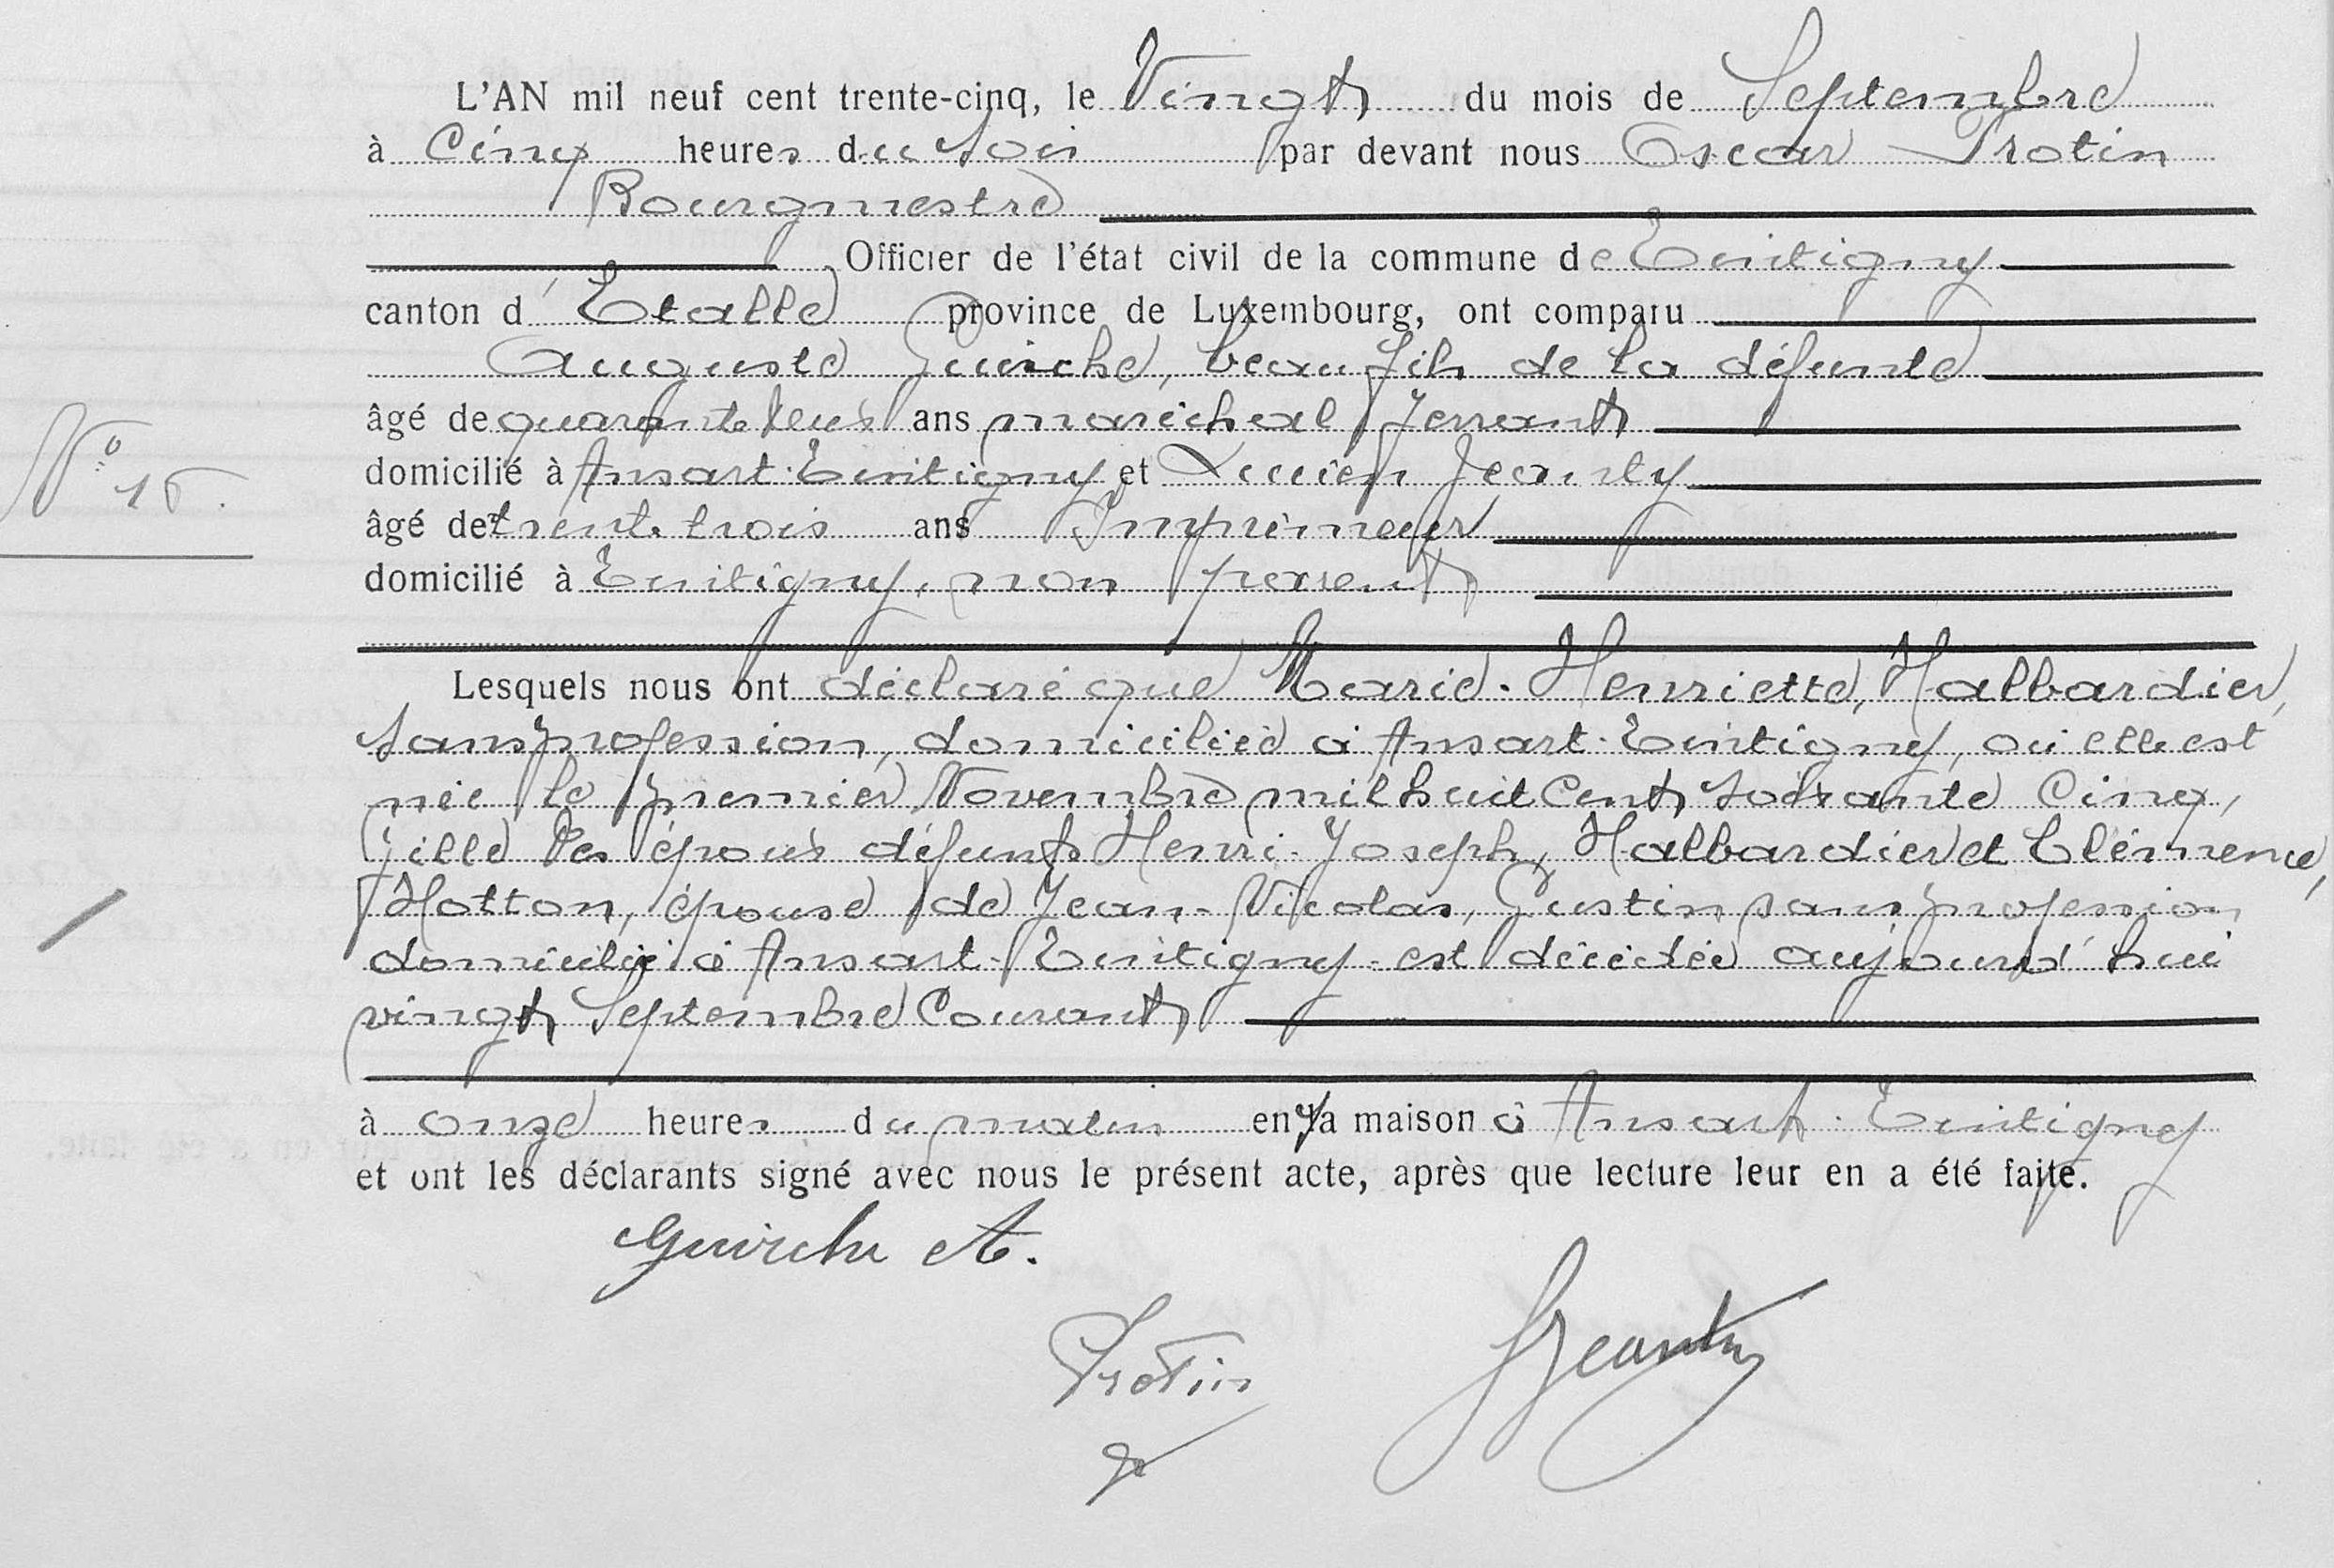 L'AN mil neuf cent trente-cinq, le Vingt du mois de Septembre
à Cinq heures du soir par devant nous Oscar Protin
Bourgmestre
Officier de l'état civil de la commune de Tintigny
canton d'Etalle province de Luxembourg, ont comparu
Auguste Guirche, beau fils de la défunte
âgé de quarante deux ans maréchal ferrant
domicilié à Ansart-Tintigny et Lucien Jeanty
âgé de trente trois ans Imprimeur
domicilié à Tintigny, non parent
N° 15.
Lesquels nous ont déclaré que Marie-Henriette, Halbardier,
sans profession, domiciliée à Ansart-Tintigny, où elle est
née le premier Novembre mil huit Cent soixante Cinq,
fille des époux défunts Henri-Joseph, Halbardier et Clémence,
Hotton, épouse de Jean-Nicolas, Gustin sans profession
domicilié à Ansart-Tintigny est décédée aujourd'hui
vingt Septembre Courant
à onze heures du matin en sa maison à Ansart-Tintigny
et ont les déclarants signé avec nous le présent acte, après que lecture leur en a été faite.
Guirche A.
Protin
Jeanty